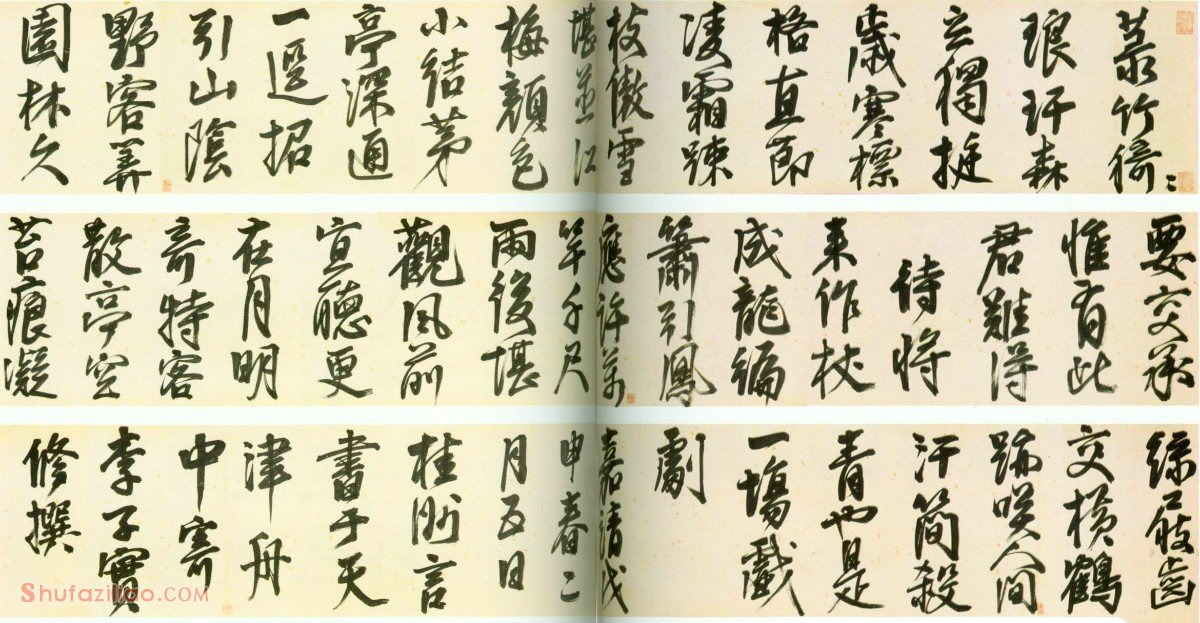 菉竹猗〻
琅玕森
立獨挺
歲寒標
格直節
凌霜踈
枝傲雪
堪並江
梅顏色
小結茅
亭深通
一逕招
引山陰
野客筭
園林久
要交承
惟有此
君難得
待將
来作杖
成龍編
簫引鳳
應許萬
竿千尺
雨後堪
觀風前
宜聽更
在月明
奇特客
散亭空
苔痕凝
綠屐齒
交橫鶴
跡咲人間
汗簡殺
青也是
一塲戲
劇
嘉靖戊
申春二
月五日
桂洲言
書于天
津舟
中寄
李子實
修撰
Shufaziliao.COM